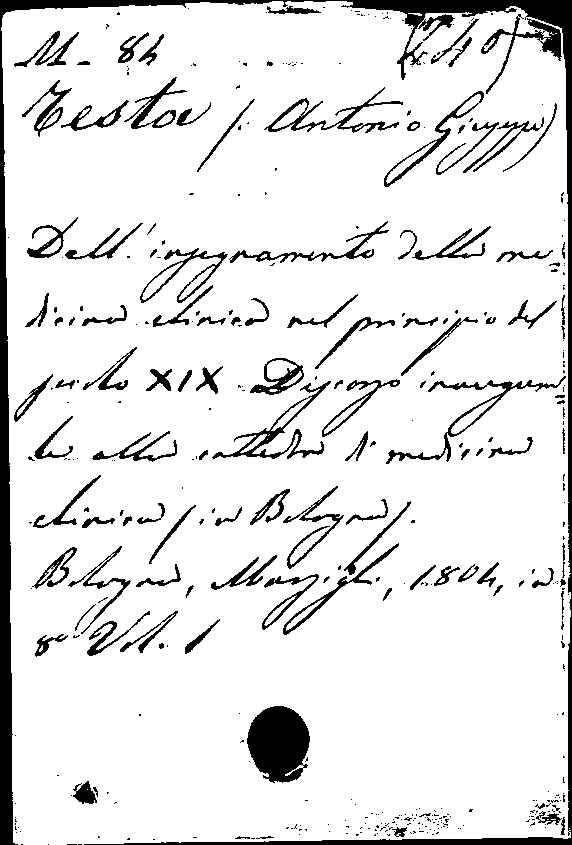 M - 84 (240)
Testa (Antonio Giuseppe)
Dell' insegnamento della me=
dicina clinica nel principio del
secolo XIX Discorso inaugura=
le alla cattedra di medicina
clinica (in Bologna).
Bologna, Marsigli, 1804, in
8º Vol. 1